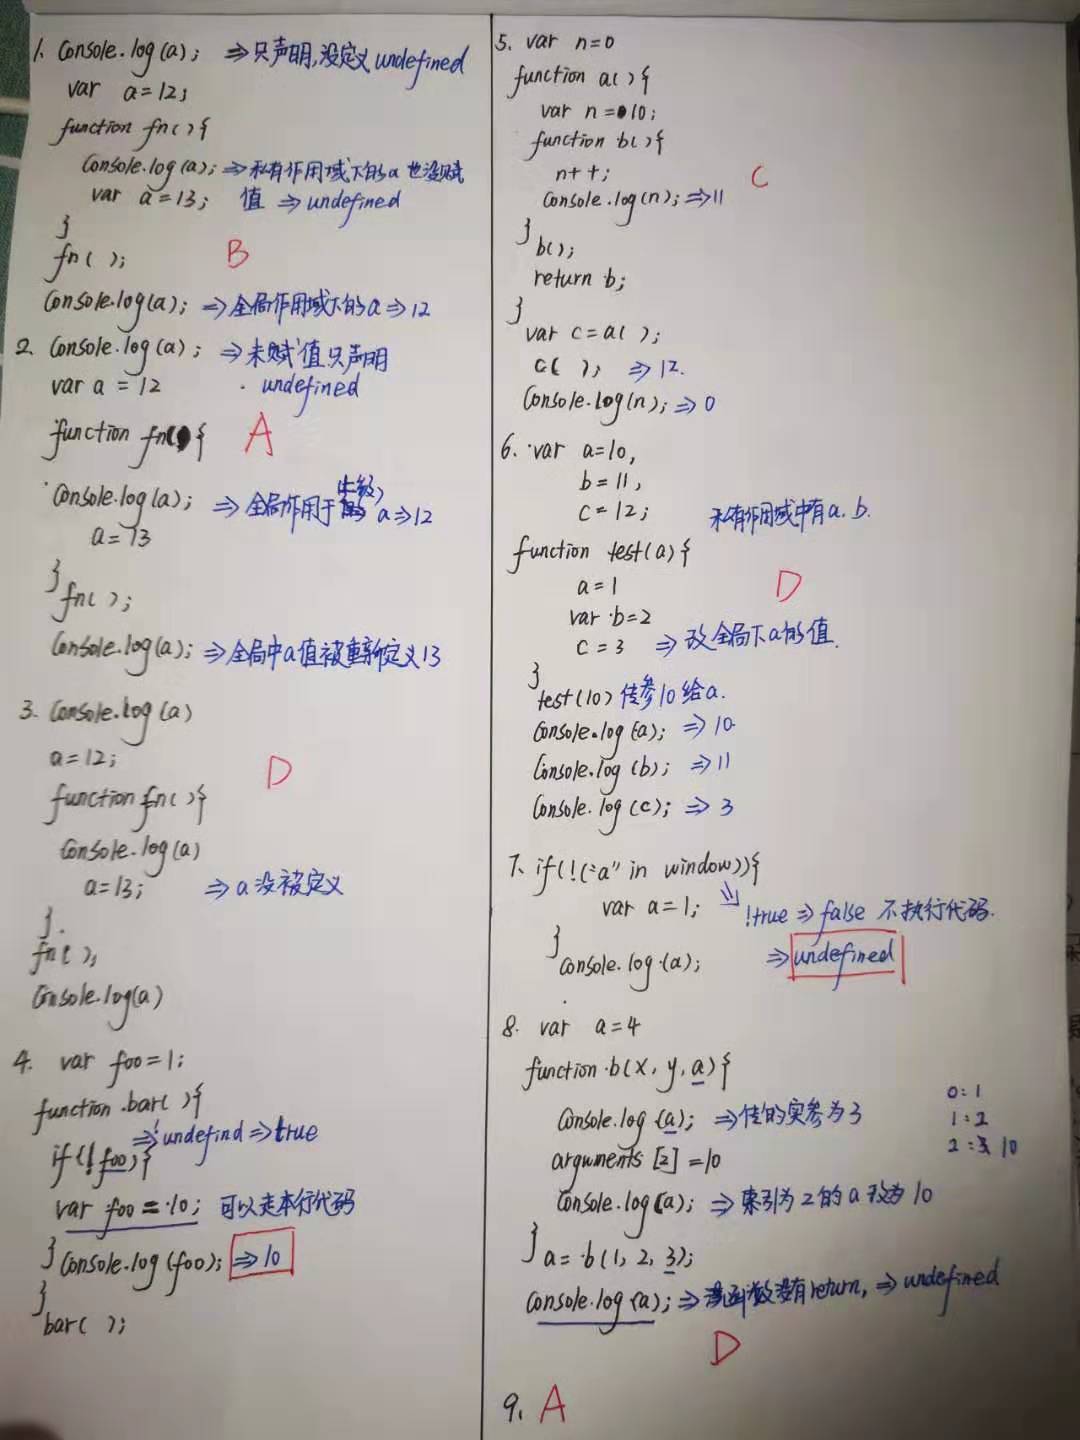 1. Console.log(a); ⇒只声明,没定义 undefined
var a=12;
function fn(){
Console.log(a); ⇒私有作用域下的a也没赋
var a=13; 值 ⇒undefined
}
fn( ); B
Console.log(a); ⇒全局作用域下的a⇒12
2. Console.log(a); ⇒未赋值只声明
var a = 12 undefined
function fn(){ A
Console.log(a); ⇒全局作用于 上级 a⇒12
a=13
}
fn( );
Console.log(a); ⇒全局中a值被重新定义13
3. Console.log(a)
a=12; D
function fn( ){
Console.log(a)
a=13; ⇒a没被定义
}
fn( );
Console.log(a)
4. var foo=1;
function bar( ){
⇒!undefind⇒true
if(!foo){
var foo=10; 可以走本行代码
}
Console.log(foo); ⇒10
}
bar( );
5. var n=0
function a( ){
var n=10;
function b( ){
n++; C
Console.log(n);⇒11
}
b( );
return b;
}
var c=a( );
c( ); ⇒12.
Console.log(n);⇒0
6. var a=10,
b=11,
c=12; 私有作用域中有a.b.
function test(a){
a=1 D
var b=2
c=3 ⇒改全局下a的值.
}
test(10) 传参10给a.
Console.log(a); ⇒10
Console.log(b); ⇒11
Console.log(c); ⇒3
7. if(!("a" in window)){
var a=1; ⇒ !true⇒false 不执行代码.
}
Console.log(a); ⇒undefined
8. var a=4
function b(x, y, a){
0:1
Console.log(a); ⇒传的实参为3 1:2
arguments[2]=10 2:3 10
Console.log(a); ⇒索引为2的a改为10
}
a=b(1, 2, 3);
Console.log(a);⇒函数没有return, ⇒undefined
D
9. A